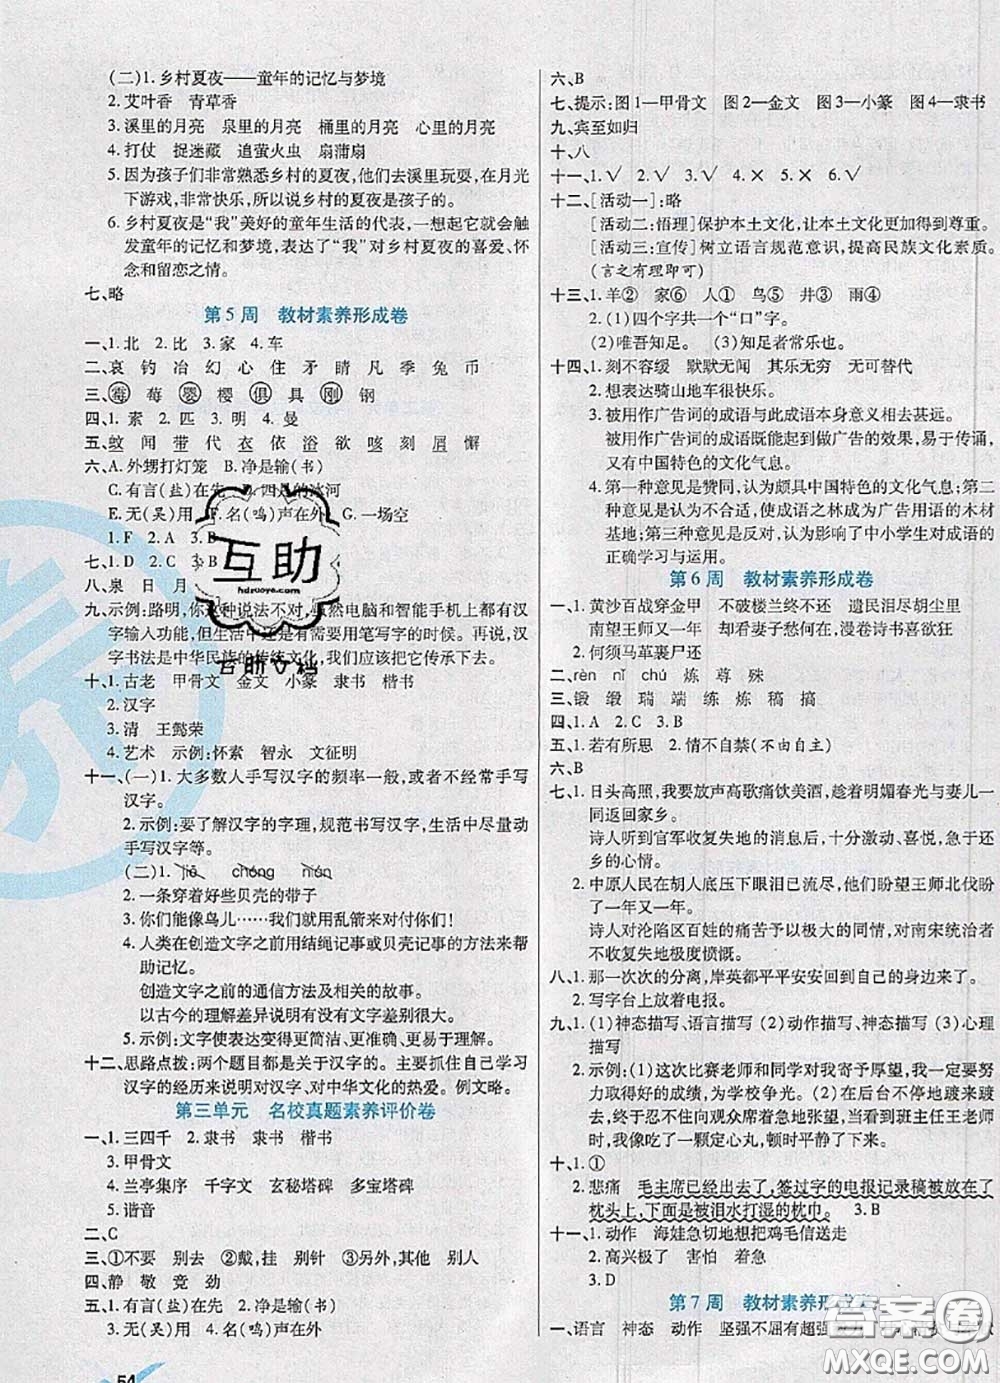 (二)1. 乡村夏夜——童年的记忆与梦境
2. 艾叶香 青草香
3. 溪里的月亮 泉里的月亮 桶里的月亮 心里的月亮
4. 打仗 捉迷藏 追萤火虫 扇蒲扇
5. 因为孩子们非常熟悉乡村的夏夜,他们去溪里玩耍,在月光
下游戏,非常快乐,所以说乡村的夏夜是孩子的。
6. 乡村夏夜是“我”美好的童年生活的代表,一想起它就会触
发童年的记忆和梦境,表达了“我”对乡村夏夜的喜爱、怀
念和留恋之情。
七、略
第5周 教材素养形成卷
一、1. 北 2. 比 3. 家 4. 车
二、哀 钓 冶 幻 心 住 矛 睛 凡 季 兔 币
三、霉 莓 婴 樱 俱 具 刚 钢
四、1. 素 2. 匹 3. 明 4. 曼
五、蚊 闻 带 代 衣 依 浴 欲 咳 刻 屑 懈
六、A. 外甥打灯笼 B. 净是输(书)
C. 有言(盐)在先 D. 四是冰河
E. 无(吴)用 F. 名(鸣)声在外 G. 一场空
1. F 2. A 3. B
七、1. D 2. C 3. B
八、泉 日 月
九、示例:路明,你这种说法不对,虽然电脑和智能手机上都有汉
字输入功能,但生活中还是有需要用笔写字的时候。再说,汉
字书法是中华民族的传统文化,我们应该把它传承下去。
十、1. 古老 甲骨文 金文 小篆 隶书 楷书
2. 汉字
3. 清 王懿荣
4. 艺术 示例:怀素 智永 文征明
十一、(一)1. 大多数人手写汉字的频率一般,或者不经常手写
汉字。
2. 示例:要了解汉字的字理,规范书写汉字,生活中尽量动
手写汉字等。
(二)1. jiē chóng nián
2. 一条穿着好些贝壳的带子
3. 你们能像鸟儿……我们就用乱箭来对付你们!
4. 人类在创造文字之前用结绳记事或贝壳记事的方法来帮
助记忆。
创造文字之前的通信方法及相关的故事。
以古今的理解差异说明有没有文字的区别。
5. 示例:文字使表达变得更简洁、更准确、更形象。
十二、思路点拨:两个题目都是关于汉字的。主要抓住自己学习
汉字的经历来说明对汉字、对中华文化的热爱。例文略。
第三单元 名校真题素养评价卷
一、1. 三四千 2. 隶书 隶书 楷书
3. 甲骨文
4. 兰亭集序 千字文 玄秘塔碑 多宝塔碑
5. 谐音
二、C
三、①不要 别去 ②戴,挂 别针 ③另外,其他 别人
四、静 敬 竞 劲
五、1. 有言(盐)在先 2. 净是输(书)
3. 无(吴)用 4. 名(鸣)声在外
54
六、B
七、提示:图1—甲骨文 图2—金文 图3—小篆 图4—隶书
九、宾至如归
十、八
十一、1. √ 2. √ 3. √ 4. × 5. ×
十二、[活动一]:略
[活动二:悟理]保护本土文化,让本土文化更加得到尊重。
[活动三:宣传]树立语言规范意识,提高民族文化素质。
(言之有理即可)
十三、1. 羊② 家⑥ 人① 鸟⑤ 井③ 雨④
2. (1)四个字共一个“口”字。
(2)唯吾知足。 (3)知足常乐。
十四、1. 刻不容缓 默默无闻 其乐无穷 无可替代
2. 想表达骑山地车很快乐。
3. 被用作广告词的成语与此成语本身意义相去甚远。
被用作广告词的成语既能起到做广告的效果,易于传诵,
又有中国特色的文化气息。
4. 第一种意见是赞同,认为颇具中国特色的文化气息;第二
种意见是不合适,使成语之林成为广告用语的木材
基地;第三种意见是反对,认为影响了中小学生对成语的
正确学习与运用。
第6周 教材素养形成卷
一、1. 黄沙百战穿金甲 不破楼兰终不还 遗民泪尽胡尘里
南望王师又一年 却看妻子愁何在,漫卷诗书喜欲狂
2. 何须马革裹尸还
二、rèn nǐ chú 炼 尊 殊
三、锻 缎 瑞 端 练 炼 稿 搞
四、1. A 2. C 3. B
五、1. 若有所思 2. 情不自禁(不由自主)
六、B
七、1. 日头高照,我要放声高歌痛饮美酒,趁着明媚春光与妻儿一
同返回家乡。
诗人听到官军收复失地的消息后,十分激动、喜悦,急于还
乡的心情。
2. 中原人民在胡人底压下眼泪已流尽,他们盼望王师北伐盼
了一年又一年。
诗人对沦陷区百姓的痛苦予以极大的同情,对南宋统治者
不收复失地极度愤慨。
八、1. 那一次次的分离,岸英都平平安安回到自己的身边来了。
2. 写字台上放着电报。
九、1. (1)神态描写、语言描写 (2)动作描写 (3)心理
描写
2. 示例:(1)这次比赛老师和同学对我寄予厚望,我一定要
努力取得好的成绩! (2)在后台他不停地踱来踱去,
终于忍不住向观众席着急地张望,突然看到班主任王老师
时,我像吃了一颗定心丸,顿时平静了下来。
十、1. ①
2. 悲痛 毛主席已经出去了,签过字的电报记录稿被放在了
枕头上,下面是被泪水打湿的枕巾。 3. B
十一、1. 动作 海娃急切地想把鸡毛信送走
2. 高兴极了 害怕 着急
3. D
第7周 教材素养形成卷
一、语言 神态 动作 坚强不屈有超强
互助
hdzuoye.com
互助文档
答案圈
MXQE.COM